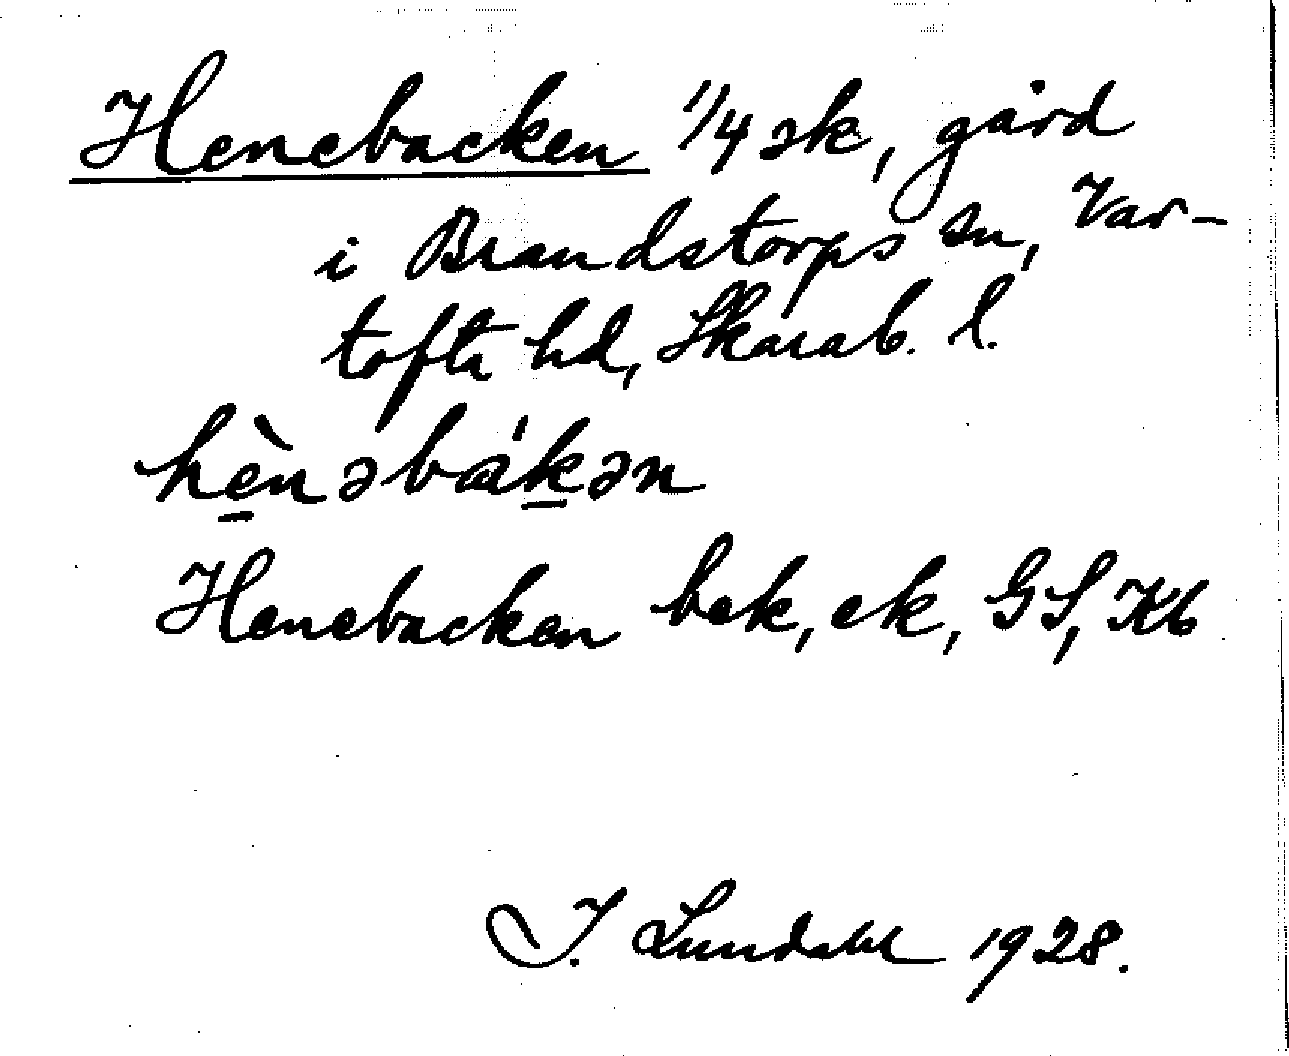 Henebacken 1/4 sk, gård
i Brandstorps sn, Var-
tofta hd, Skarab. l.
hè̠nəbák̠ən
Henebacken bek, ek, GS, Kb
I. Lundahl 1928.